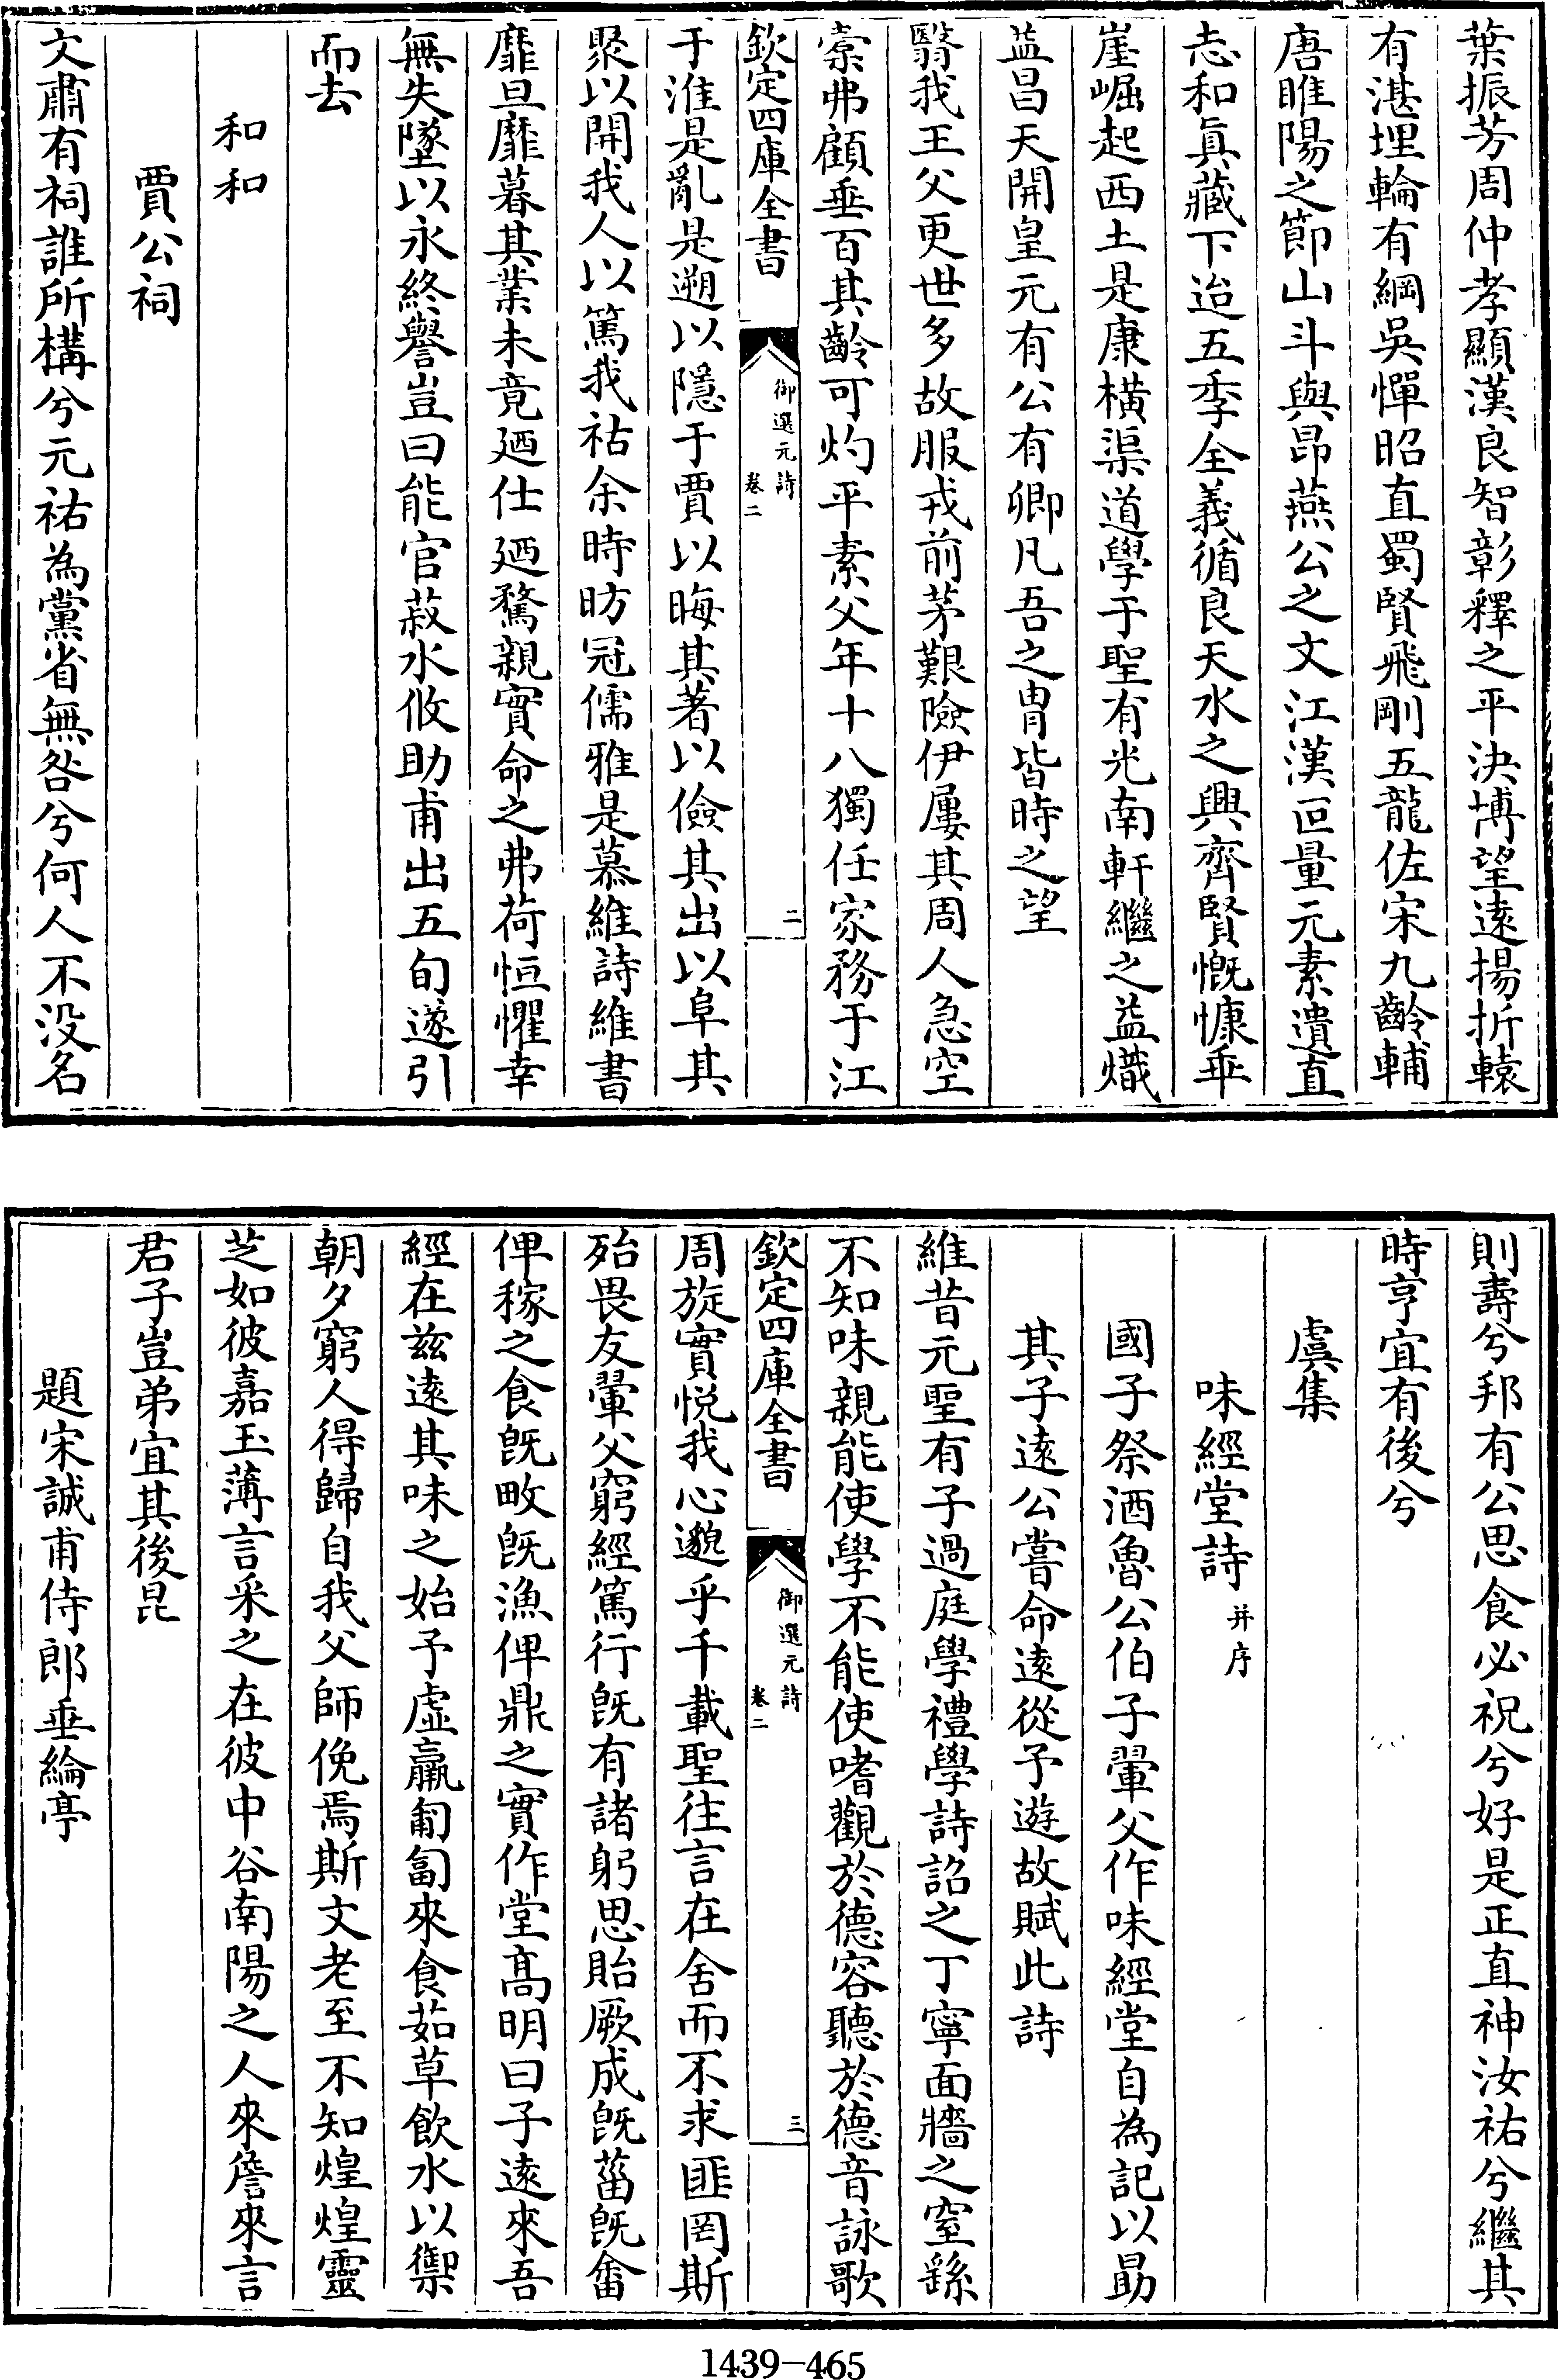 葉振芳周仲孝顯漢良智彰釋之平決博望遠揚折轅
有湛埋輪有綱吳憚昭直蜀賢飛剛五龍佐宋九齡輔
唐睢陽之節山斗與昂燕公之文江漢叵量元素遺直
志和真藏下迨五季全義循良天水之興齊賢慨慷乖
崖崛起西土是康横渠道學于聖有光南軒繼之益熾
益昌天開皇元有公有卿凡吾之胄皆時之望
翳我王父更世多故服戎前茅艱險伊屢其周人急空
橐弗顧垂百其齡可灼平素父年十八獨任家務于江
欽定四庫全書
御選元詩
卷二
二
于淮是亂是遡以隱于賈以晦其著以儉其出以阜其
聚以開我人以篤我祜余時昉冠儒雅是慕維詩維書
靡旦靡暮其業未竟廼仕廼騖親實命之弗荷恒懼幸
無失墜以永終譽豈曰能官菽水攸助甫出五旬遂引
而去
和和
賈公祠
文肅有祠誰所構兮元祐為黨省無咎兮何人不没名
則壽兮邦有公思食必祝兮好是正直神汝祐兮繼其
時亨宜有後兮
虞集
味經堂詩并序
國子祭酒魯公伯子翬父作味經堂自為記以勗
其子遠公嘗命遠從予遊故賦此詩
維昔元聖有子過庭學禮學詩詔之丁寧面牆之窒繇
不知味親能使學不能使嗜觀於德容聽於德音詠歌
欽定四庫全書
御選元詩
卷二
三
周旋實悦我心邈乎千載聖往言在舍而不求匪罔斯
殆畏友翬父窮經篤行旣有諸躬思貽厥成旣菑旣畬
俾稼之食旣畋旣漁俾鼎之實作堂髙明曰子遠來吾
經在兹遠其味之始予虛羸匍匐來食茹草飲水以禦
朝夕窮人得歸自我父師俛焉斯文老至不知煌煌靈
芝如彼嘉玉薄言采之在彼中谷南陽之人來詹來言
君子豈弟宜其後昆
題宋誠甫侍郎垂綸亭
1439-465